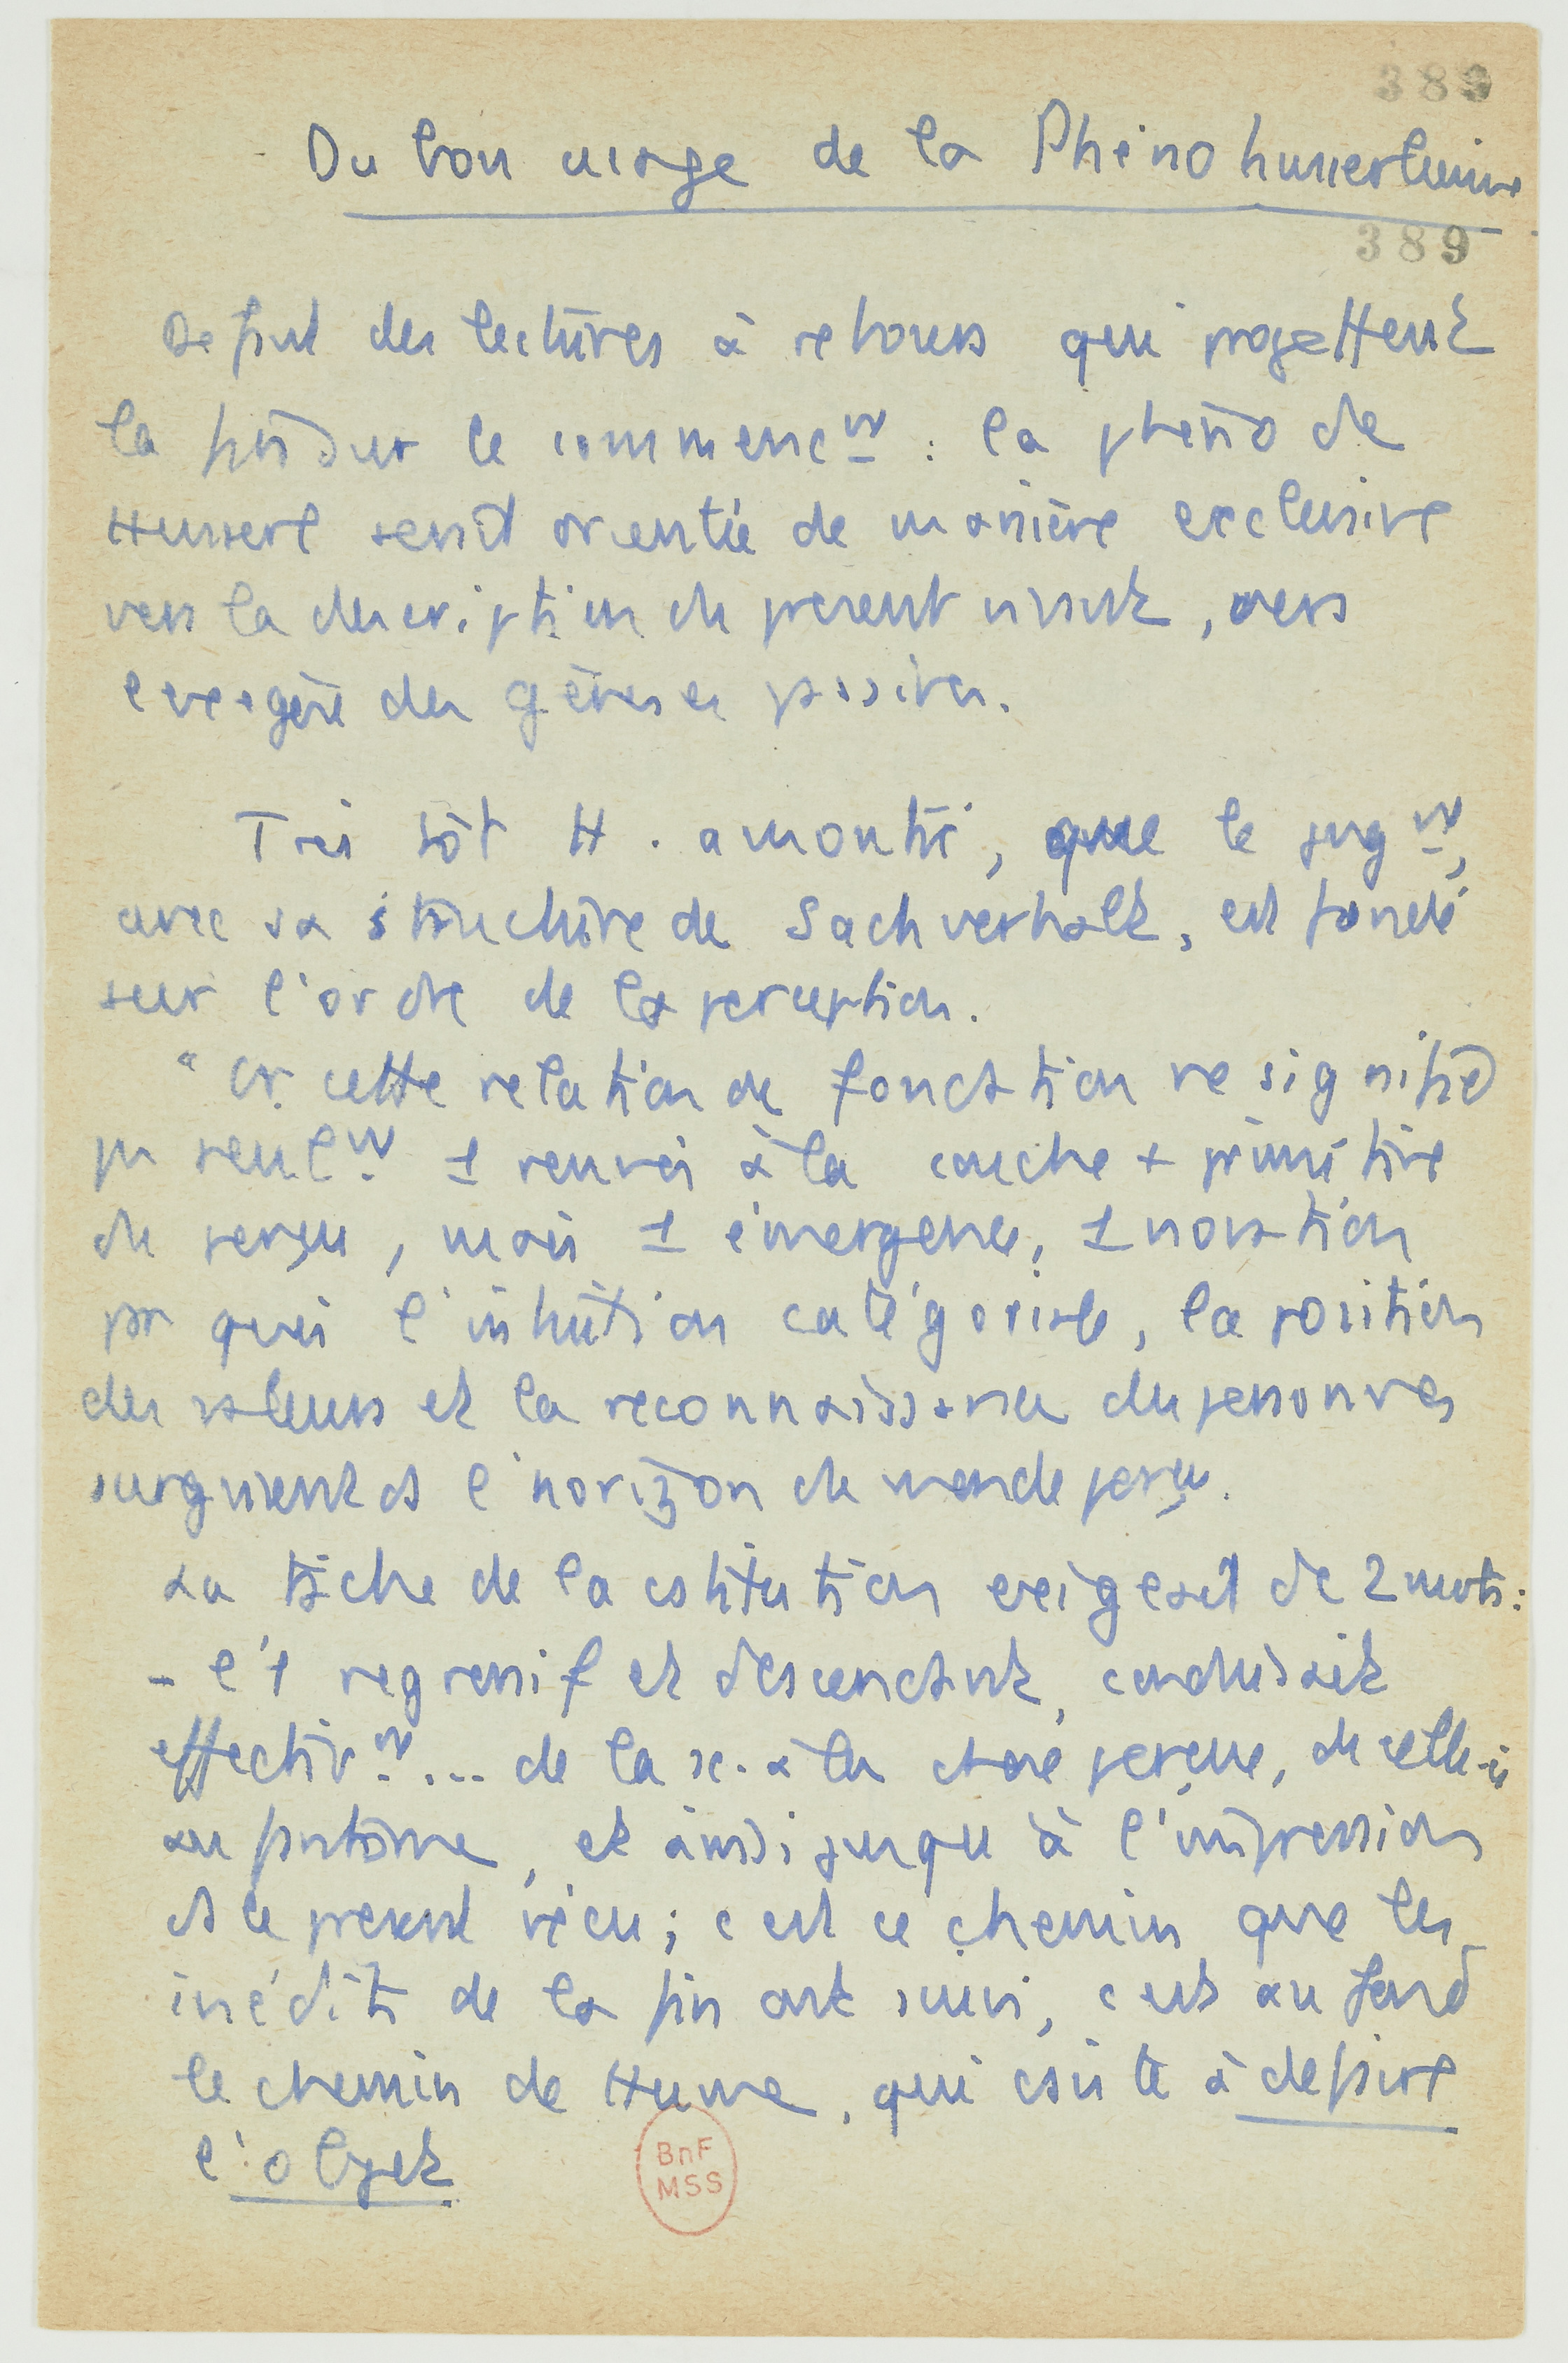 389
Du bon usage de la Phéno husserlienne
389
Défaut des lectures à rebours qui projettent
la fin sur le commenc^nt : la phéno de
Husserl serait orientée de manière exclusive
vers la description du présent vivant, vers
l'exégèse des genèses passives.
Très tôt H. a montré, que le jug^nt,
avec sa structure de Sachverhalt, est fondé
sur l'ordre de la perception.
" Or cette relation de fondation ne signifie
pas seul^nt 1 renvoi à la couche + primitive
du perçu, mais 1 émergence, 1 novation
par quoi l'intuition catégoriale, la position
des valeurs et la reconnaissance des personnes
surgissent ds l'horizon du monde perçu.
La tâche de la cstitution exigeait de 2 mvts :
- l'1 régressif et descendant, conduisait
effectiv^nt ... de la sc. à la chose perçue, de celle-ci
au fantôme, et ainsi jusqu'à l'impression
ds le présent vécu ; c'est ce chemin que les
inédits de la fin ont suivi, c'est au fond
le chemin de Hume, qui csiste à défaire
l'objet
BnF
MSS